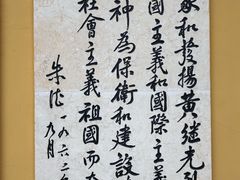 承和發揚黃继光烈
國主義和國際主義
神為保衛和建設
社會主義祖國而
朱德
一九六二年
九月